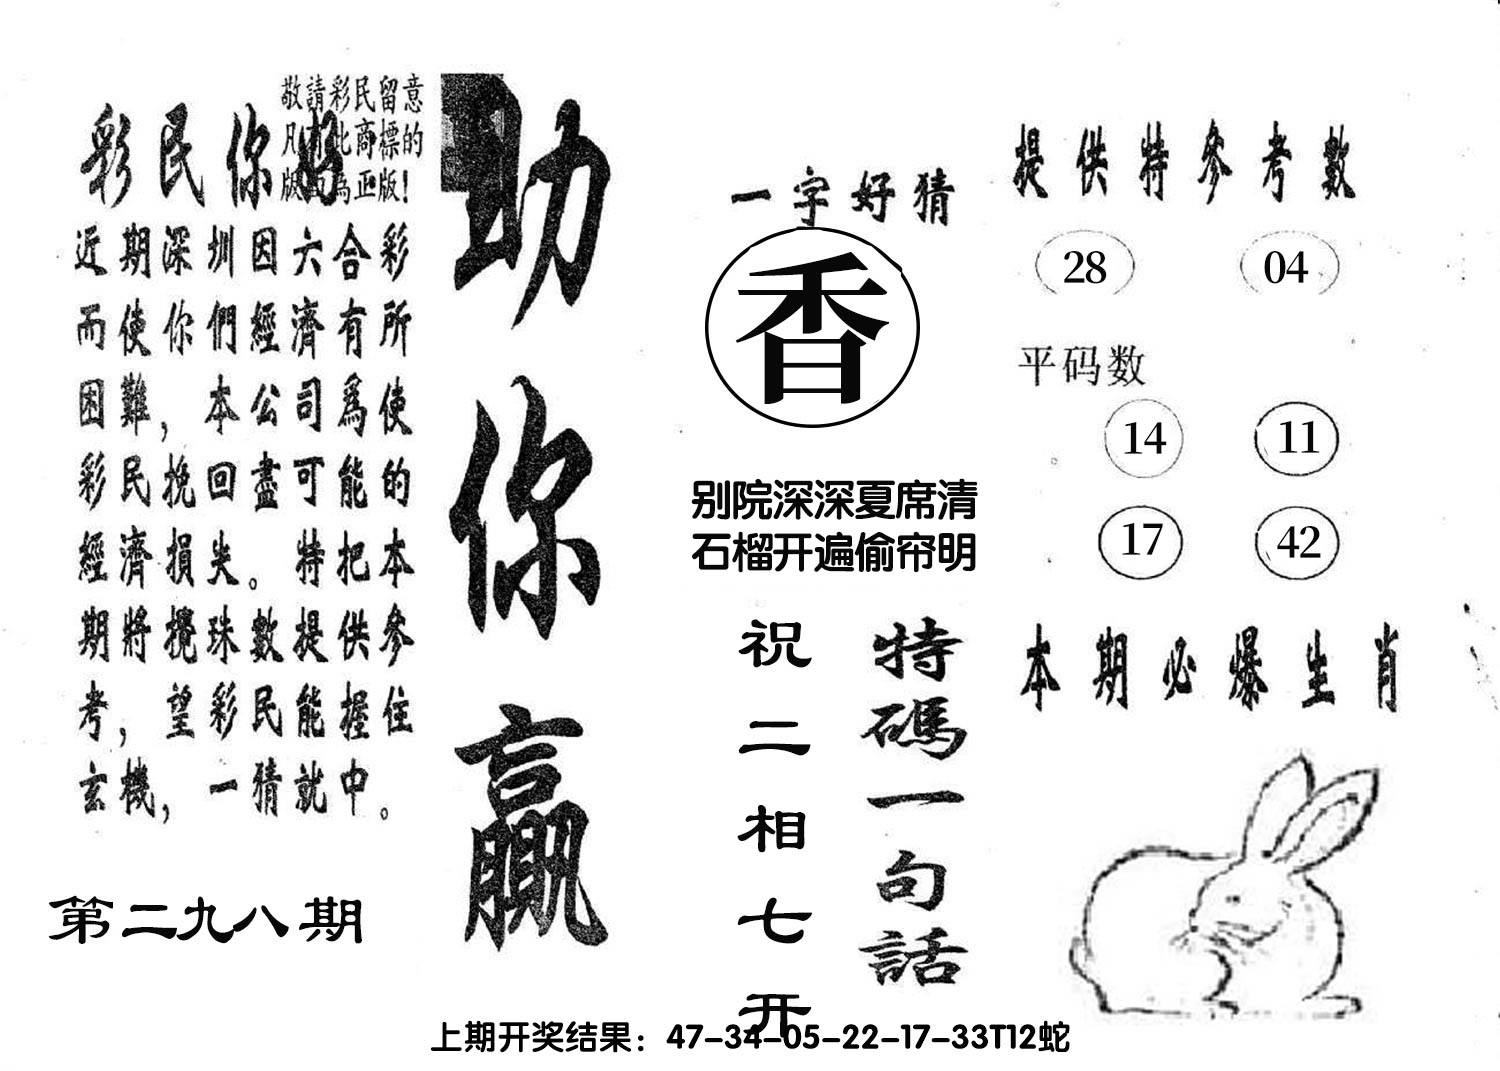 敬請彩民留意
凡有此商標的
版面為正版！
彩民你好
近期深圳因六合彩
而使你們經濟有所
困難，本公司爲使
彩民挽回盡可能的
經濟損失。特把本
期將攪珠數提供參
考，望彩民能握住
玄機，一猜就中。
第二九八期
助你贏
一字好猜
香
别院深深夏席清
石榴开遍偷帘明
特碼一句話
祝二相七开
提供特參考數
28 04
平码数
14 11
17 42
本期必爆生肖
上期开奖结果：47-34-05-22-17-33T12蛇